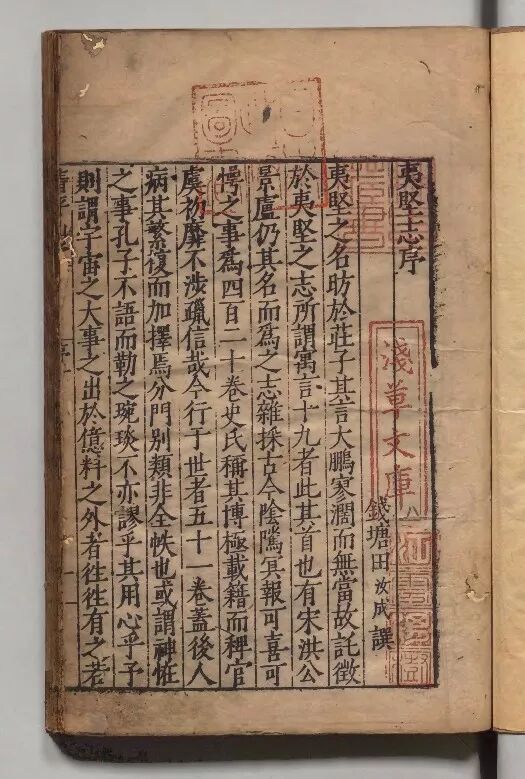 夷堅志序
錢塘田汝成譔
夷堅之名昉於莊子其言大鵬寥濶而無當故託徵
於夷堅之志所謂寓言十九者此其首也有宋洪公
景廬仍其名而為之志雜採古今陰隲冥報可喜可
愕之事為四百二十卷史氏稱其博極載籍而稗官
虞初靡不涉躐信哉今行于世者五十一卷蓋後人
病其繁復而加擇焉分門别類非全帙也或謂神怪
之事孔子不語而勒之琬琰不亦謬乎其用心乎予
則謂宇宙之大事之出於億料之外者往往有之若
淺草文庫